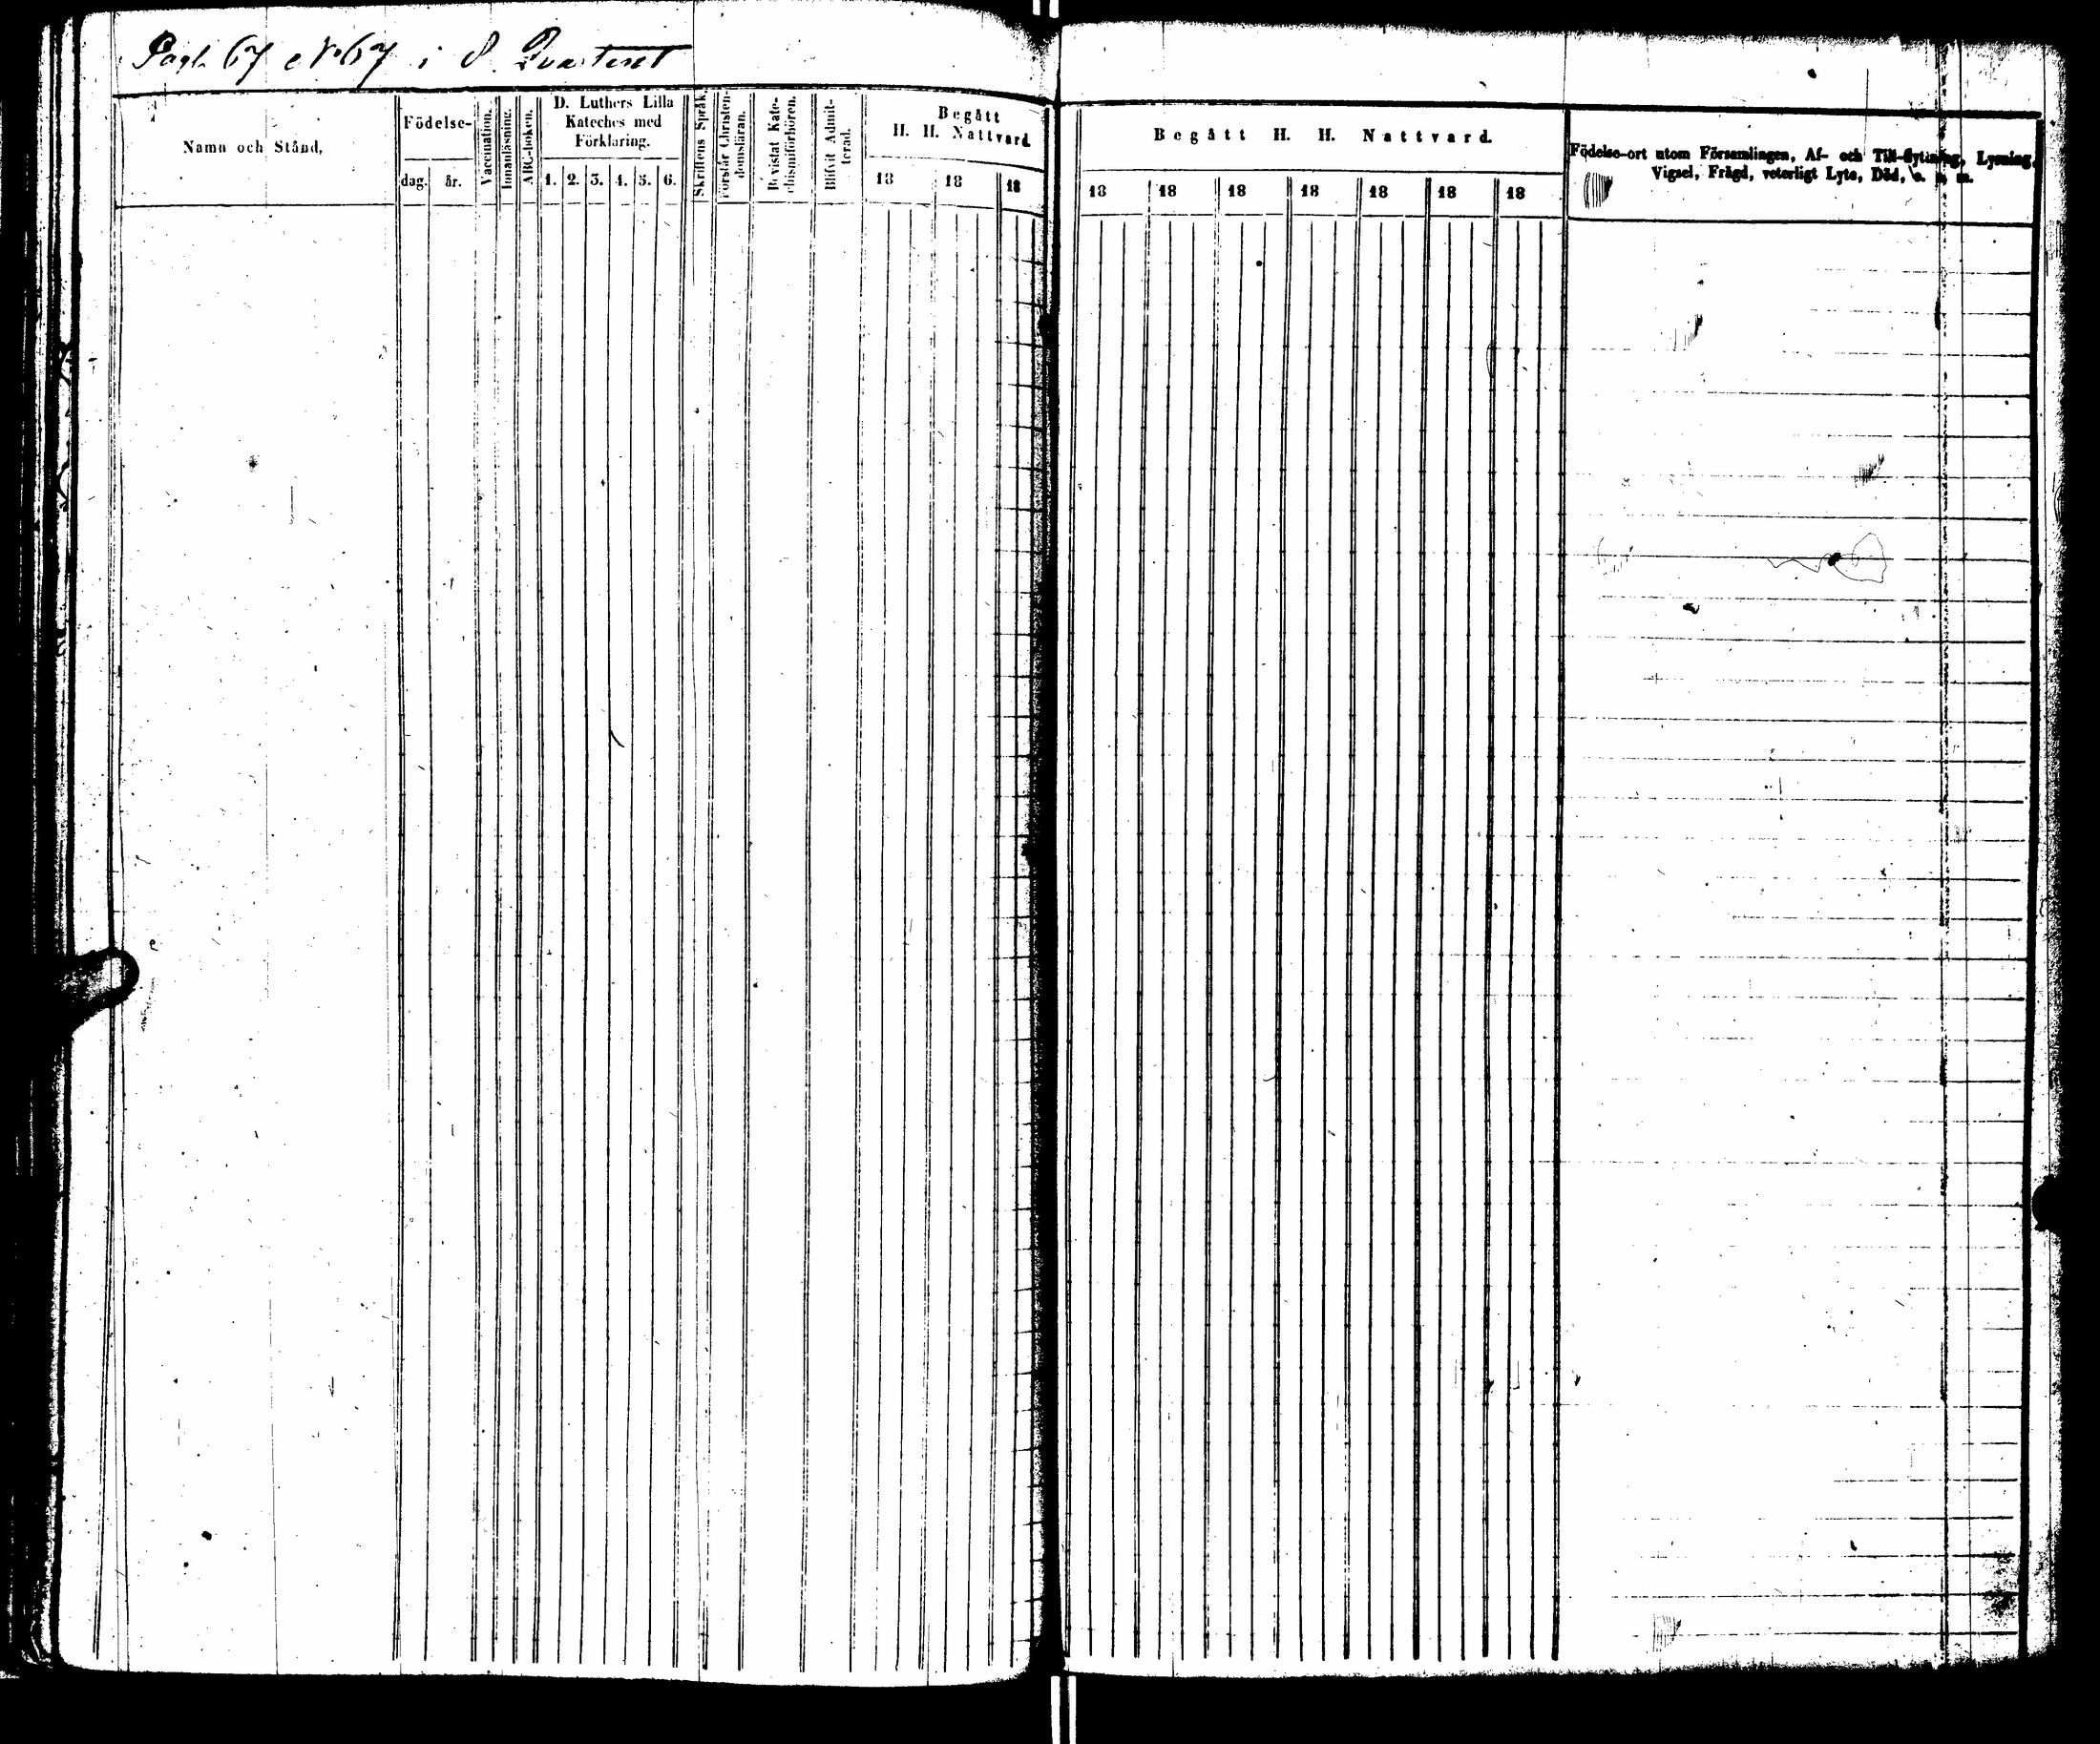 Pag. 67 No 67 i 8. Qvarteret
Namn och Stånd,
Födelse-
dag. år.
Vaccination.
Innanläsning.
ABC-boken.
D. Luthers Lilla
Kateches med
Förklaring.
1. 2. 3. 4. 5. 6.
Skriftens Språk.
Förstår Christen-
domsläran.
Bevistat Kate-
chismiförhören.
Blifvit Admit-
terad.
Begått
H. H. Nattvard
18 18 18
Begått H. H. Nattvard.
18 18 18 18 18 18 18
Födelse-ort utom Församlingen, Af- och Till-flyttning, Lysning,
Vigsel, Frägd, veterligt Lyte, Död, o. s. m.